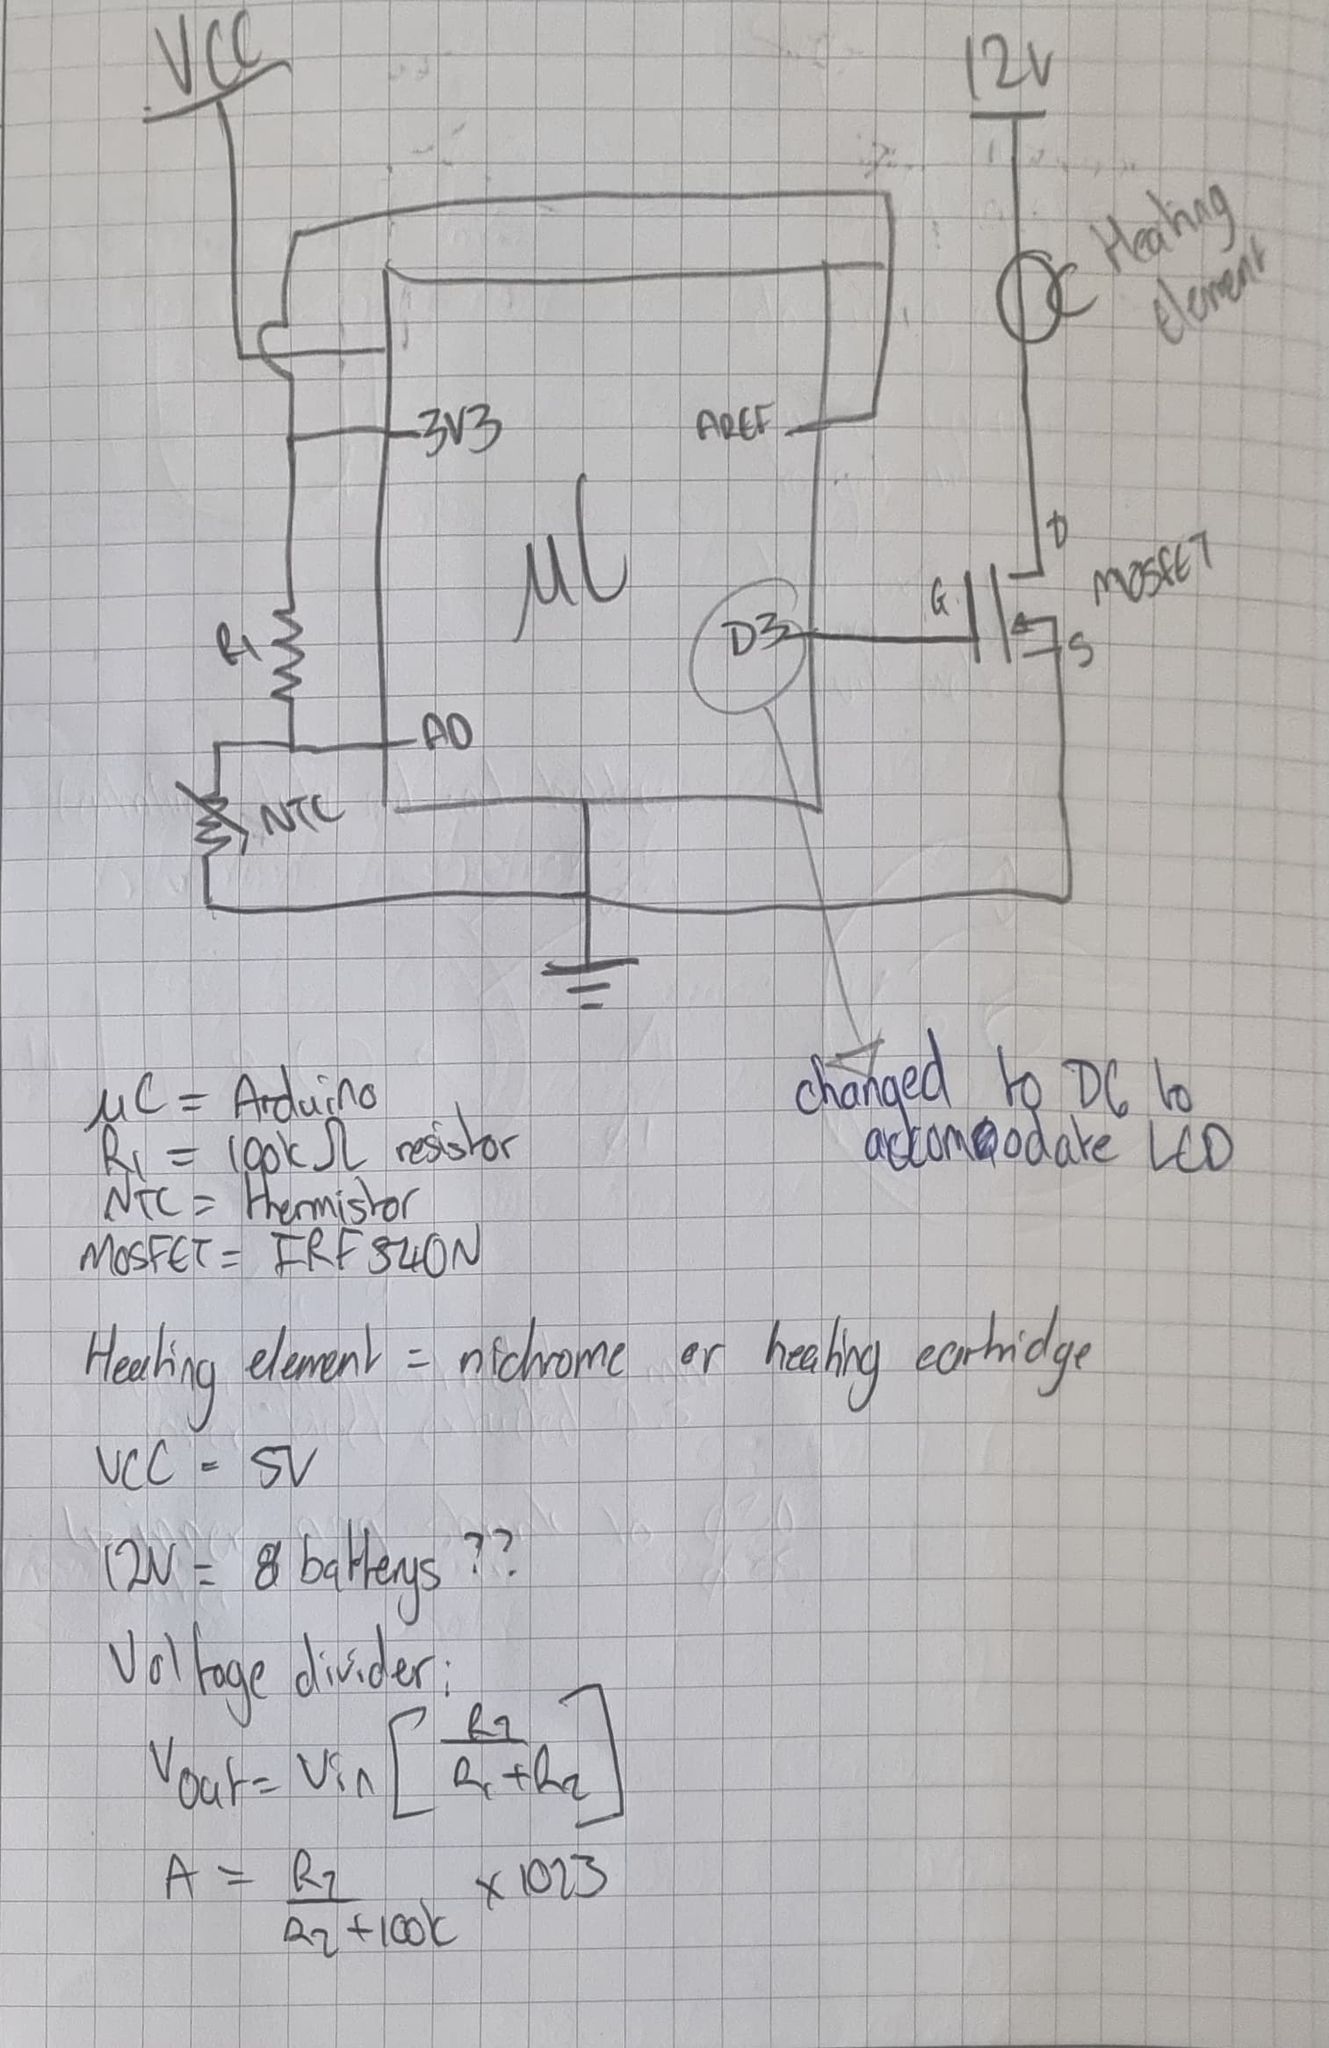 VCC
12V
Heating
element
3V3
AREF
μC
D
MOSFET
G
D3
S
R1
A0
NTC
changed to D6 to
accomodate LCD
μC = Arduino
R1 = 100k Ω resistor
NTC = thermistor
MOSFET = IRF540N
Heating element = nichrome or heating cartridge
VCC = 5V
12V = 8 batterys ??
Voltage divider:
Vout = Vin [ R2 / R1 + R2 ]
A = R2 / R2 + 100k × 1023